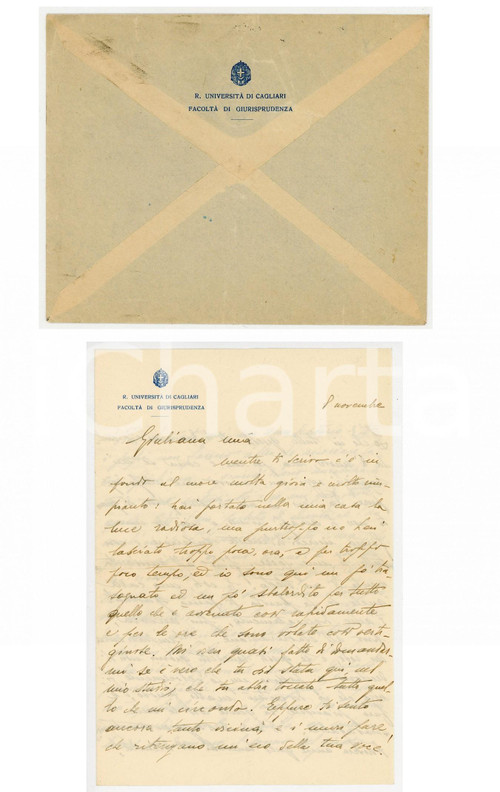 R. UNIVERSITÀ DI CAGLIARI
FACOLTÀ DI GIURISPRUDENZA
R. UNIVERSITÀ DI CAGLIARI
FACOLTÀ DI GIURISPRUDENZA
8 novembre
Giuliana mia
mentre ti scrivo c'è in
fondo al cuore molta gioia e molto rim-
pianto: hai portato nella mia casa la
luce radiosa, ma purtroppo ne hai
lasciato troppo poca, ora, e per troppo
poco tempo, ed io sono qui un po' tra-
sognato ed un po' sbalordito per tutto
quello che è avvenuto così rapidamente
e per le ore che sono volate così verti-
ginose. Mi vien quasi fatto di domandar-
mi se è vero che tu sei stata qui nel
mio studio, che tu abbia toccato tutto quel-
lo che mi circonda. Eppure ti sento
ancora tanto vicina, e i muri pare
che ritengano un'eco della tua voce!
Charta